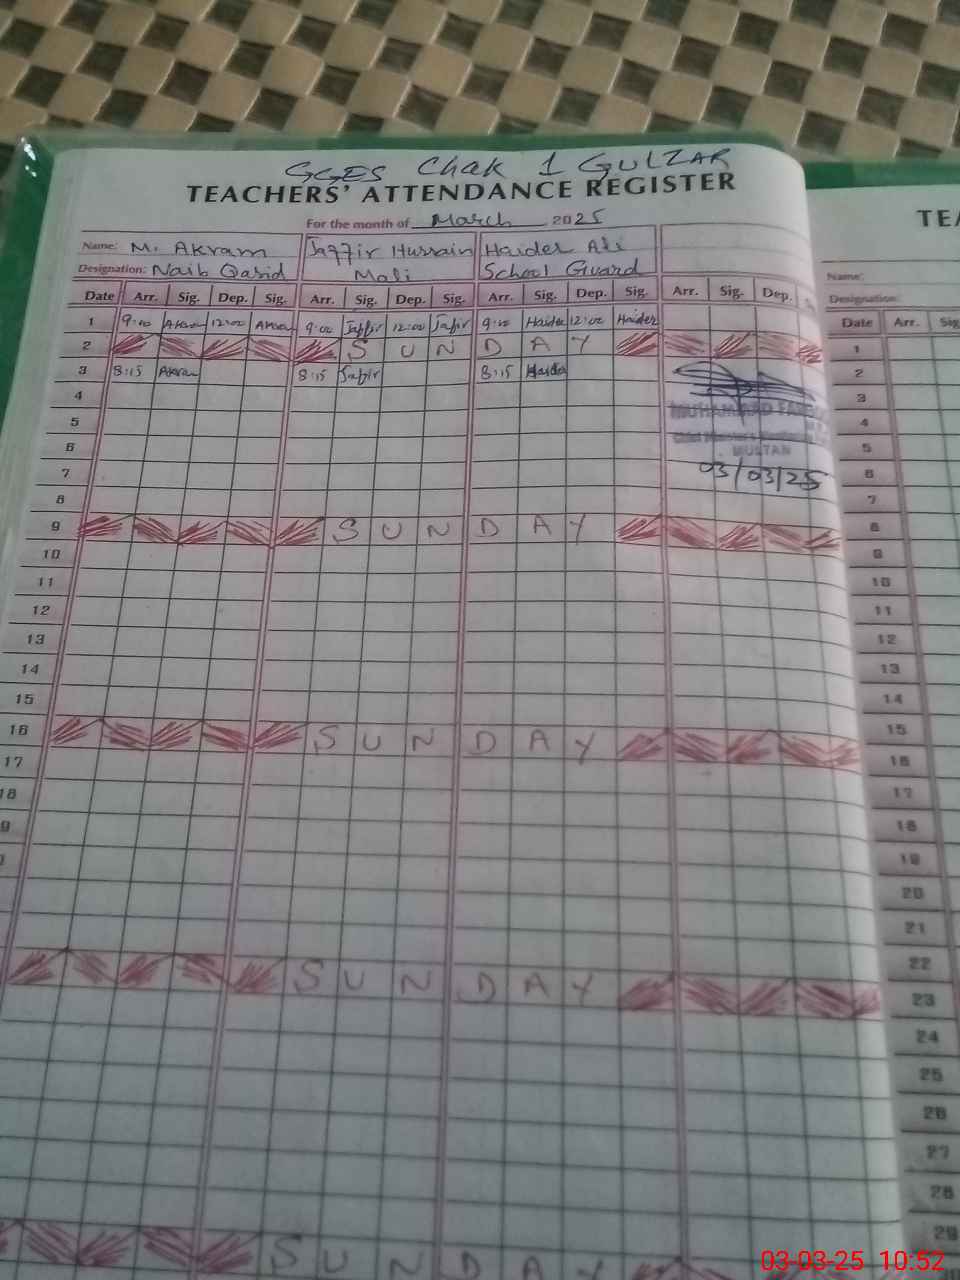 GGES Chak 1 GULZAR
TEACHERS' ATTENDANCE REGISTER
For the month of March 2025
Name: M. Akram Jaffir Hussain Haider Ali
Designation: Naib Qasid Mali School Guard
Date Arr. Sig. Dep. Sig. Arr. Sig. Dep. Sig. Arr. Sig. Dep. Sig. Arr. Sig. Dep.
1 9:00 Akram 12:00 Akram 9:00 Jaffir 12:00 Jafir 9:00 Haider 12:00 Haider
2 SUNDAY
3 8:15 Akram 8:15 Jafir 8:15 Haider
4
5
6
7
8
9 SUNDAY
10
11
12
13
14
15
16 SUNDAY
17
18
SUNDAY
SUNDAY
MUHAMMAD
MULTAN
03/03/25
Name:
Designation:
Date Arr.
1
2
3
4
5
6
7
8
9
10
11
12
13
14
15
16
17
18
19
20
21
22
23
24
25
26
27
28
29
03-03-25 10:52